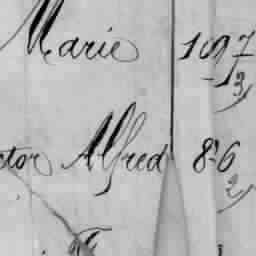 Marie 1097
3
ctor Alfred 8-6
2